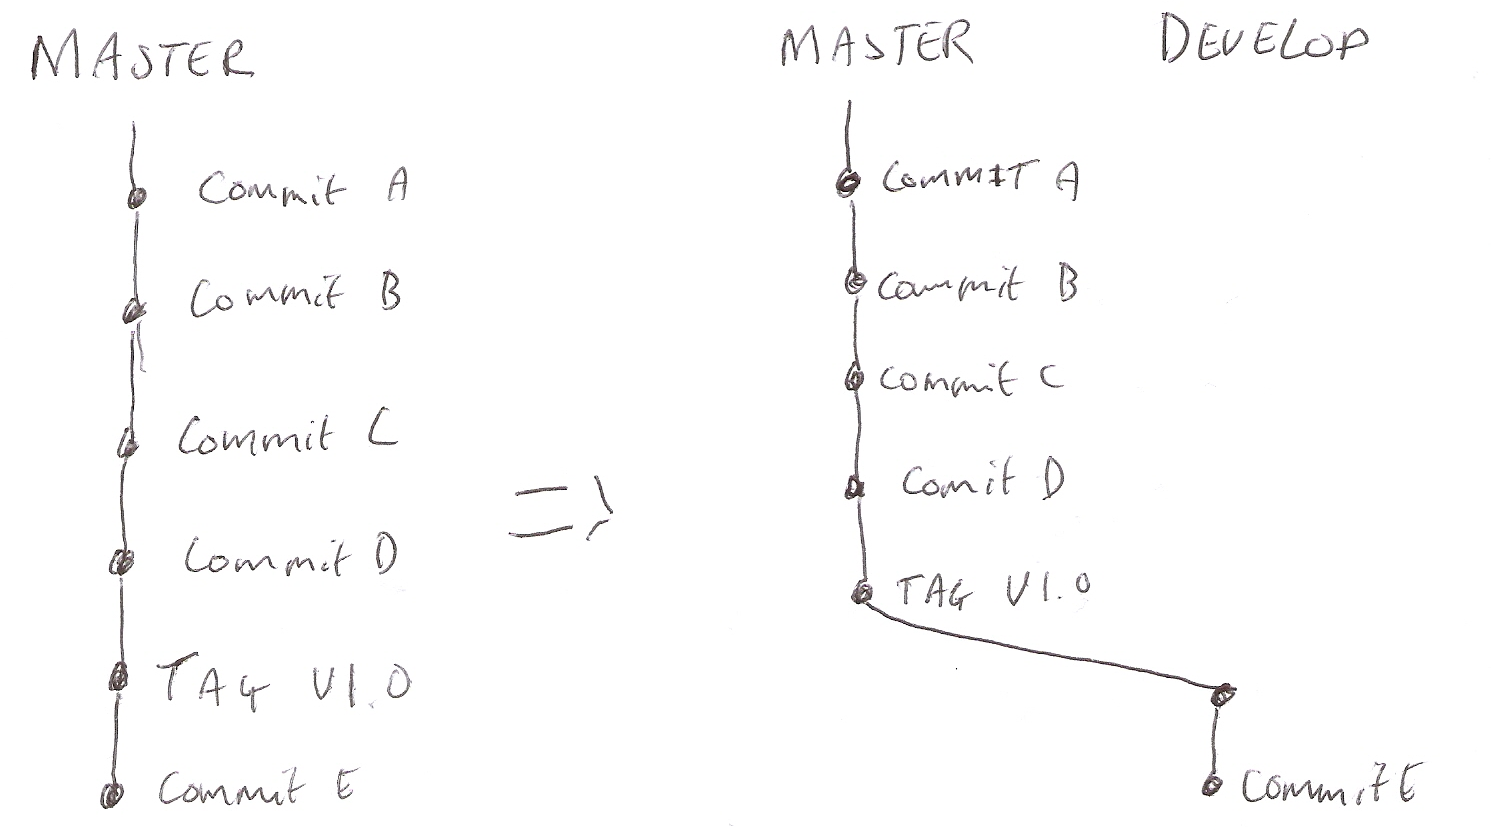 MASTER
Commit A
Commit B
Commit C
Commit D
TAG V1.0
Commit E
=>
MASTER DEVELOP
COMMIT A
Commit B
Commit C
Comit D
TAG V1.0
Commit E